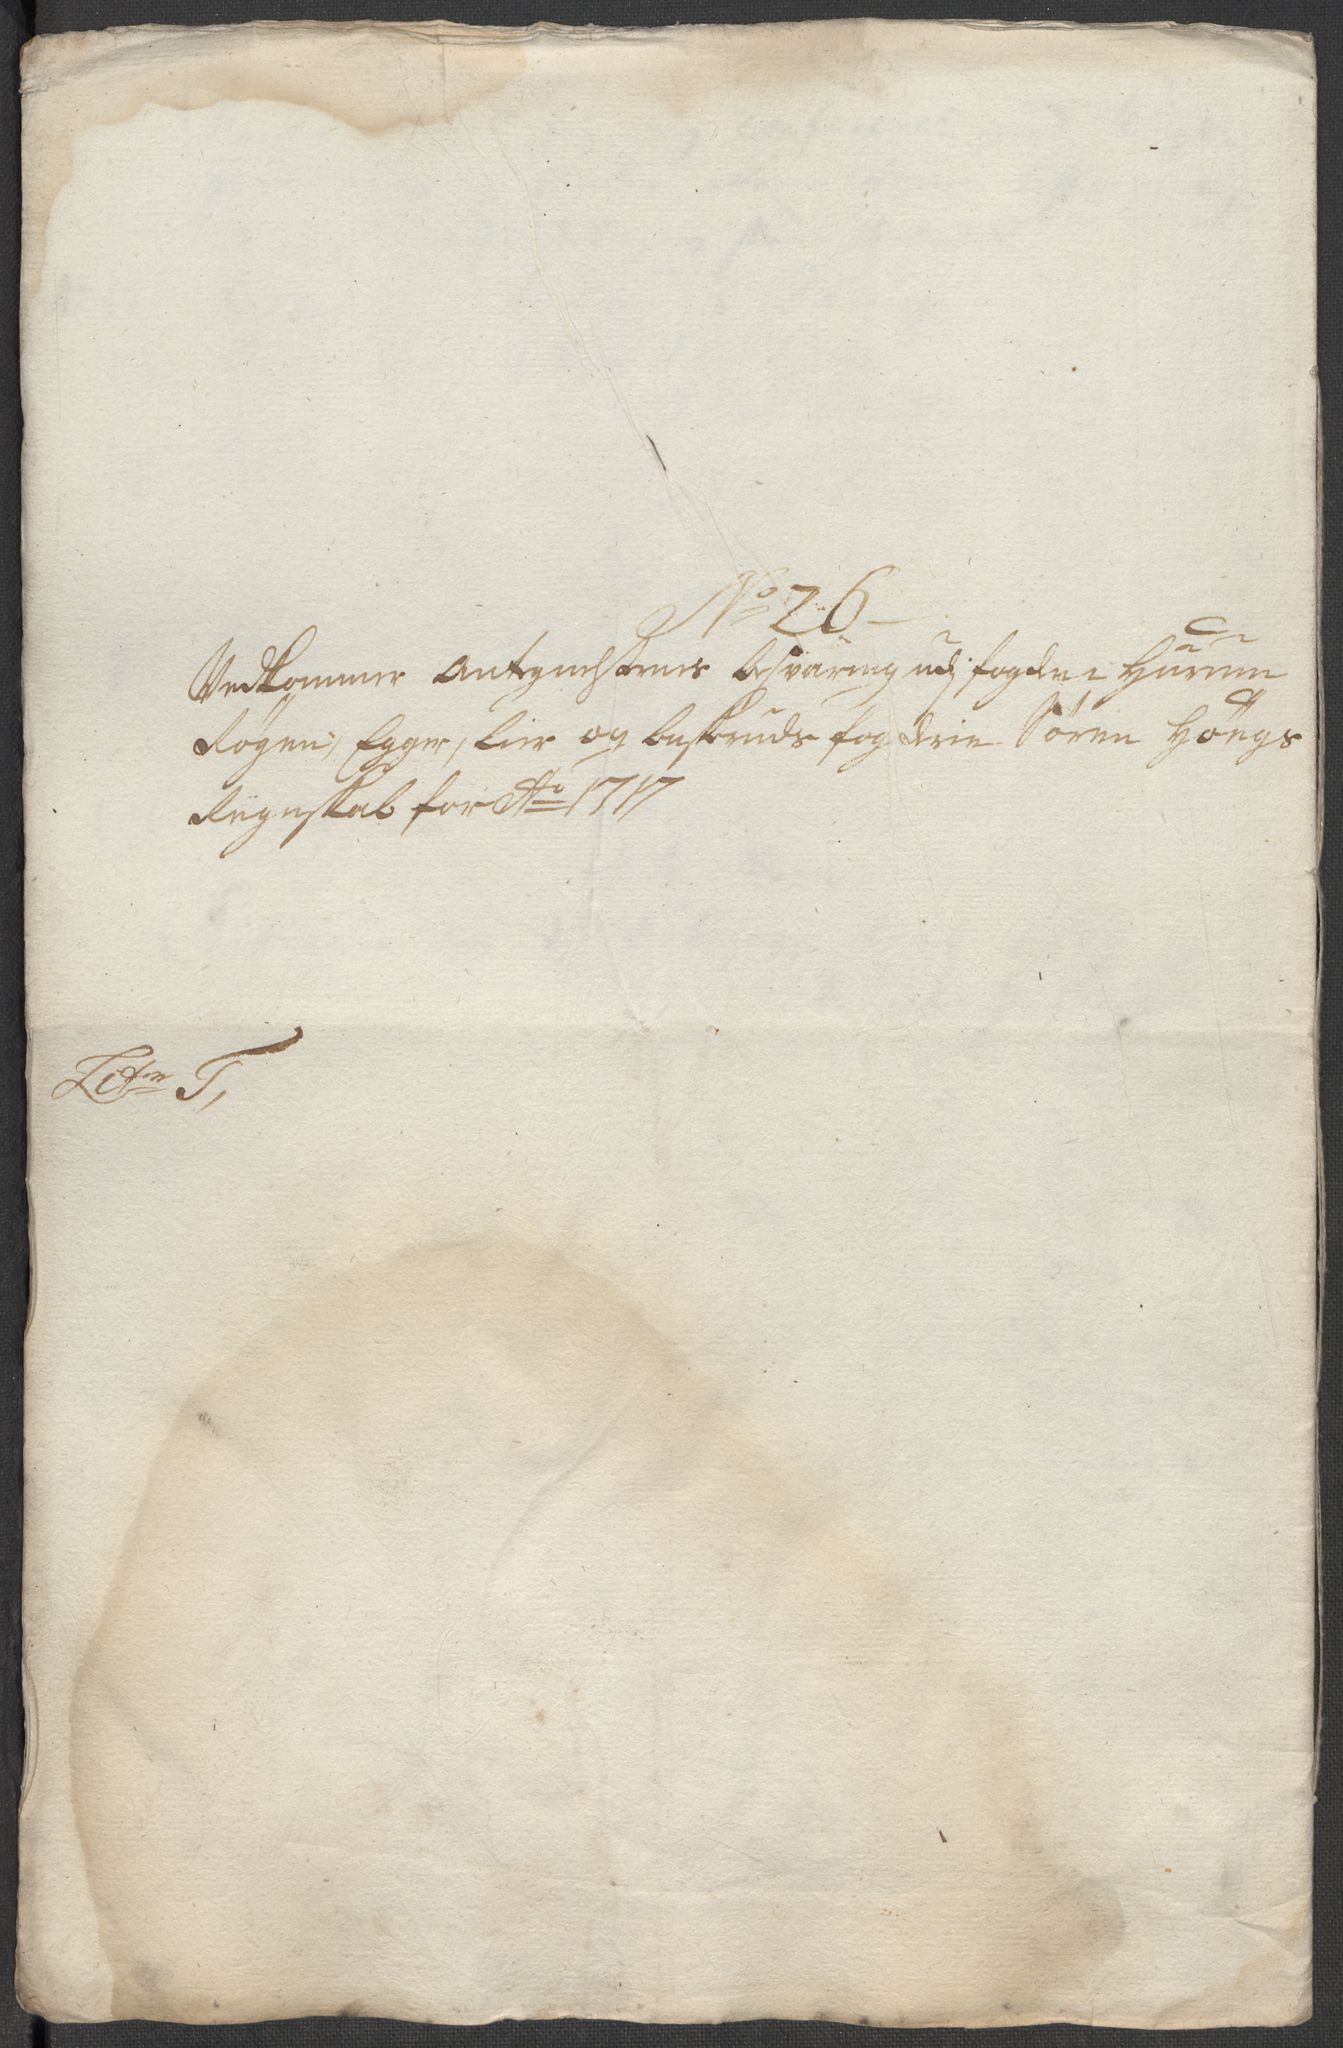 No 26
Vedkommer Antegnelsernes besvaring udj fogden i Hurum
Røgen, Egger, Lier og Buskeruds fogderie Sören Höegs
Regnskab for Ao 1717
Litr T,